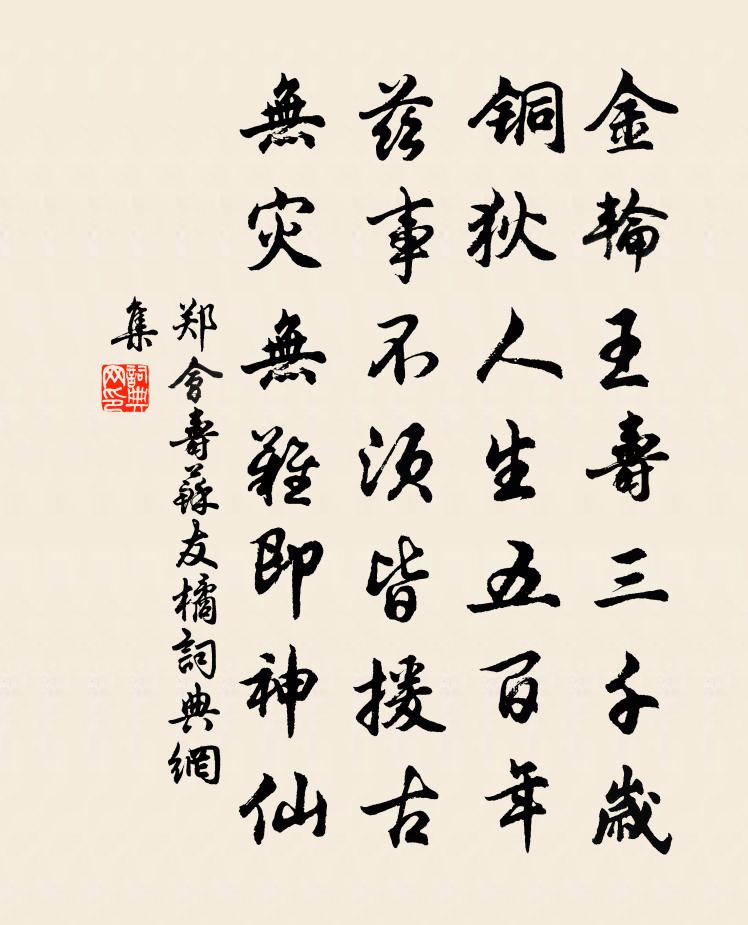 金輪王壽三千歲
铜狄人生五百年
茲事不須皆援古
無灾無難即神仙
郑會壽蘇友橘詞典網
集
詞典
网印